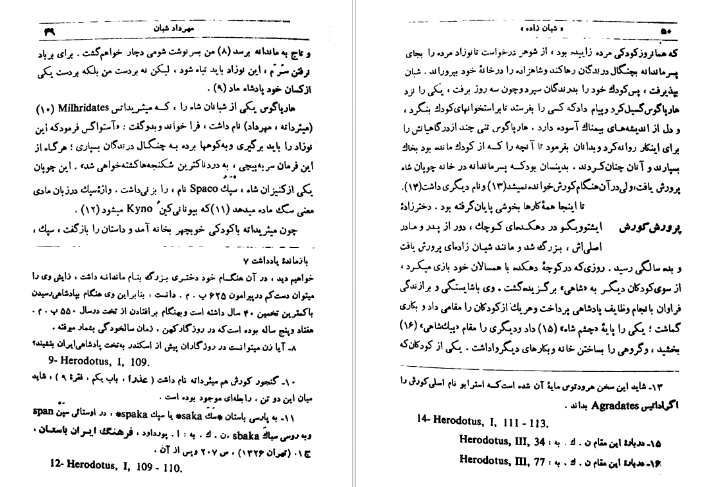 مهرداد شبان
۴۹
و تاج به ماندانه برسد (۸) من بسرنوشت شومی دچار خواهم‌گشت . برای برباد
نرفتن سرّم ، این نوزاد باید تباه شود ، لیکن نه بدست من بلکه بدست یکی
از کسان خود پادشاه ماد (۹) .
هارپاگوس یکی از شبانان شاه را ، که میثریداتس Milhridates (۱۰)
(میثردانه ، مهرداد) نام داشت ، فرا خواند و بدو گفت : «آستواگس فرموده که این
نوزاد را باید برگیری و به‌کوهها برده به چنگال درندگان بسپاری ؛ هرگاه از
این فرمان سرپیچی ، به دردناکترین شکنجه‌ها کشته‌خواهی شد» . این چوپان
یکی از کنیزان شاه ، سپاکَ Spaco نام ، را بزنی داشت . واژهٔ سپاک در زبان مادی
معنی سگ ماده میدهد (۱۱) که بیونانی کین Kyno میشود (۱۲) .
چون میثریداته با کودکی خوبچهر بخانه آمد و داستان را بازگفت ، سپاک ،
بازماندهٔ یادداشت ۷
خواهیم دید ، در آن هنگام خود دختری بزرگ بنام ماندانه داشت ، زایش وی را
میتوان دست‌کم در پیرامون ۶۲۵ ب . م . دانست ، بنابراین وی هنگام بپادشاهی‌رسیدن
با کمترین تخمین ۴۰ سال داشته است و بهنگام برافتادن از تخت در سال ۵۵۰ ب . م .
هفتاد و پنج ساله بوده است که در روزگار کهن ، زمان سالخوردگی بشمار میرفته .
۸ـ آیا زن میتوانست در روزگاران پیش از اسکندر به‌تخت پادشاهی ایران بنشیند؟
9- Herodotus, I, 109.
۱۰ـ گنجور کورش هم میثرداته نام داشت ( عذرا ، باب یکم ، فقرهٔ ۹ ) ، شاید
میان این دو تن ، رابطه‌ای موجود بوده است .
۱۱ـ به پارسی باستان *سَکَ saka* یا سپَک spaka* ، در اوستائی سپَن span
و به روسی سباکَ sbaka ، ن . ک . به : ا . پورداود ، فرهنگ ایران باستان ،
ج ۱۰ (تهران ۱۳۲۶) ، ص ۲۰۷ و پس از آن .
12- Herodotus, I, 109 - 110.
« شبان زاده »
۵۰
که همانروز کودکی مرده زاییده بود ، از شوهر درخواست تا نوزاد مرده را بجای
پسر ماندانه بچنگال درندگان رها کند و شاهزاده را در خانهٔ خود بپروراند . شبان
بپذیرفت ، پس کودک خود را بدرندگان سپرد و چون سه روز برفت ، یکی را نزد
هارپاگوس گسیل کرد و پیام داد که کسی را بفرستد تا بر استخوانهای کودک بنگرد ،
و دل از اندیشه‌های بیمناک آسوده دارد . هارپاگوس تنی چند از درگاهیانش را
برای اینکار روانه کرد و بدانان بفرمود تا آنچه را که از کودک مانده بود بخاک
بسپارند و آنان چنان‌کردند . بدینسان بود که پسر ماندانه در خانه چوپان شاه
پرورش یافت ، ولی در آن هنگام کورش خوانده نمیشد (۱۳) و نام دیگری داشت (۱۴) .
تا اینجا همهٔ کارها بخوشی پایان گرفته بود . دخترزادهٔ
پرورش کورش ایشتوویگو در دهکده‌ای کوچک ، دور از پدر و مادر
اصلی‌اش ، بزرگ شد و مانند شبان زاده‌ای پرورش یافت
و بده سالگی رسید . روزی که در کوچهٔ دهکده با همسالان خود بازی میکرد ،
از سوی کودکان دیگر به «شاهی» برگزیده‌گشت . وی با شایستگی و برازندگی
فراوان با نجام وظایف پادشاهی پرداخت و هریک از کودکان را مقامی داد و بکاری
گماشت ؛ یکی را پایهٔ «چشم شاه» (۱۵) داد و دیگری را مقام «پیک‌شاهی» (۱۶)
بخشید ، و گروهی را بساختن خانه و بکارهای دیگر واداشت . یکی از کودکان که
۱۳ـ شاید این سخن هرودتوس مایهٔ آن شده است که استرابو نام اصلی کورش را
اگراداتس Agradates بداند .
14- Herodotus, I, 111 - 113.
۱۵ـ دربارهٔ این مقام ن . ک . به : Herodotus, III, 34
۱۶ـ دربارهٔ این مقام ن . ک . به : Herodotus, III, 77